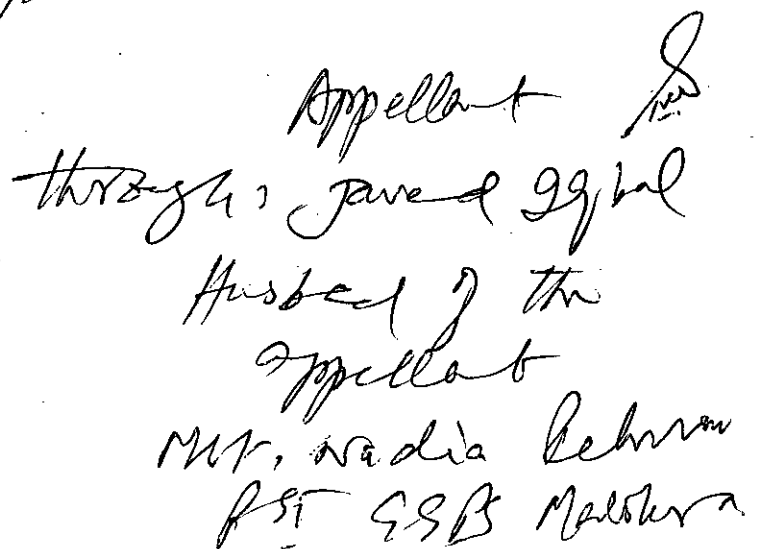 Appellant
through: Javed Iqbal
Husband of the
appellant
Mst. Nadia Rehman
PST GGPS